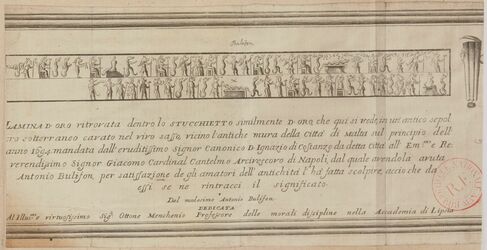 Bulifon.
LAMINA D ORO ritrovata dentro lo STUCCHIETTO similmente D ORO, che qui si vede, in un'antico sepol
cro sotterraneo cavato nel vivo sasso, vicino l'antiche mura della Citta' di Malta sul principio dell'
anno 1694. mandata dall' eruditissimo Signor Canonico D. Ignazio di Costanzo da detta Citta all' Em.mo e Re:
verendissimo Signor Giacomo Cardinal Cantelmo Arcivescovo di Napoli, dal quale avendola avuta
Antonio Bulifon, per satisfazione de gli amatori dell' antichità l' hà fatta scolpire, acciò che da
essi se ne rintracci il significato.
Dal medesimo Antonio Bulifon
DEDICATA
Al Illus.mo e virtuosissimo Sig.r Ottone Menchenio Professore delle morali discipline nella Accademia di Lipsia